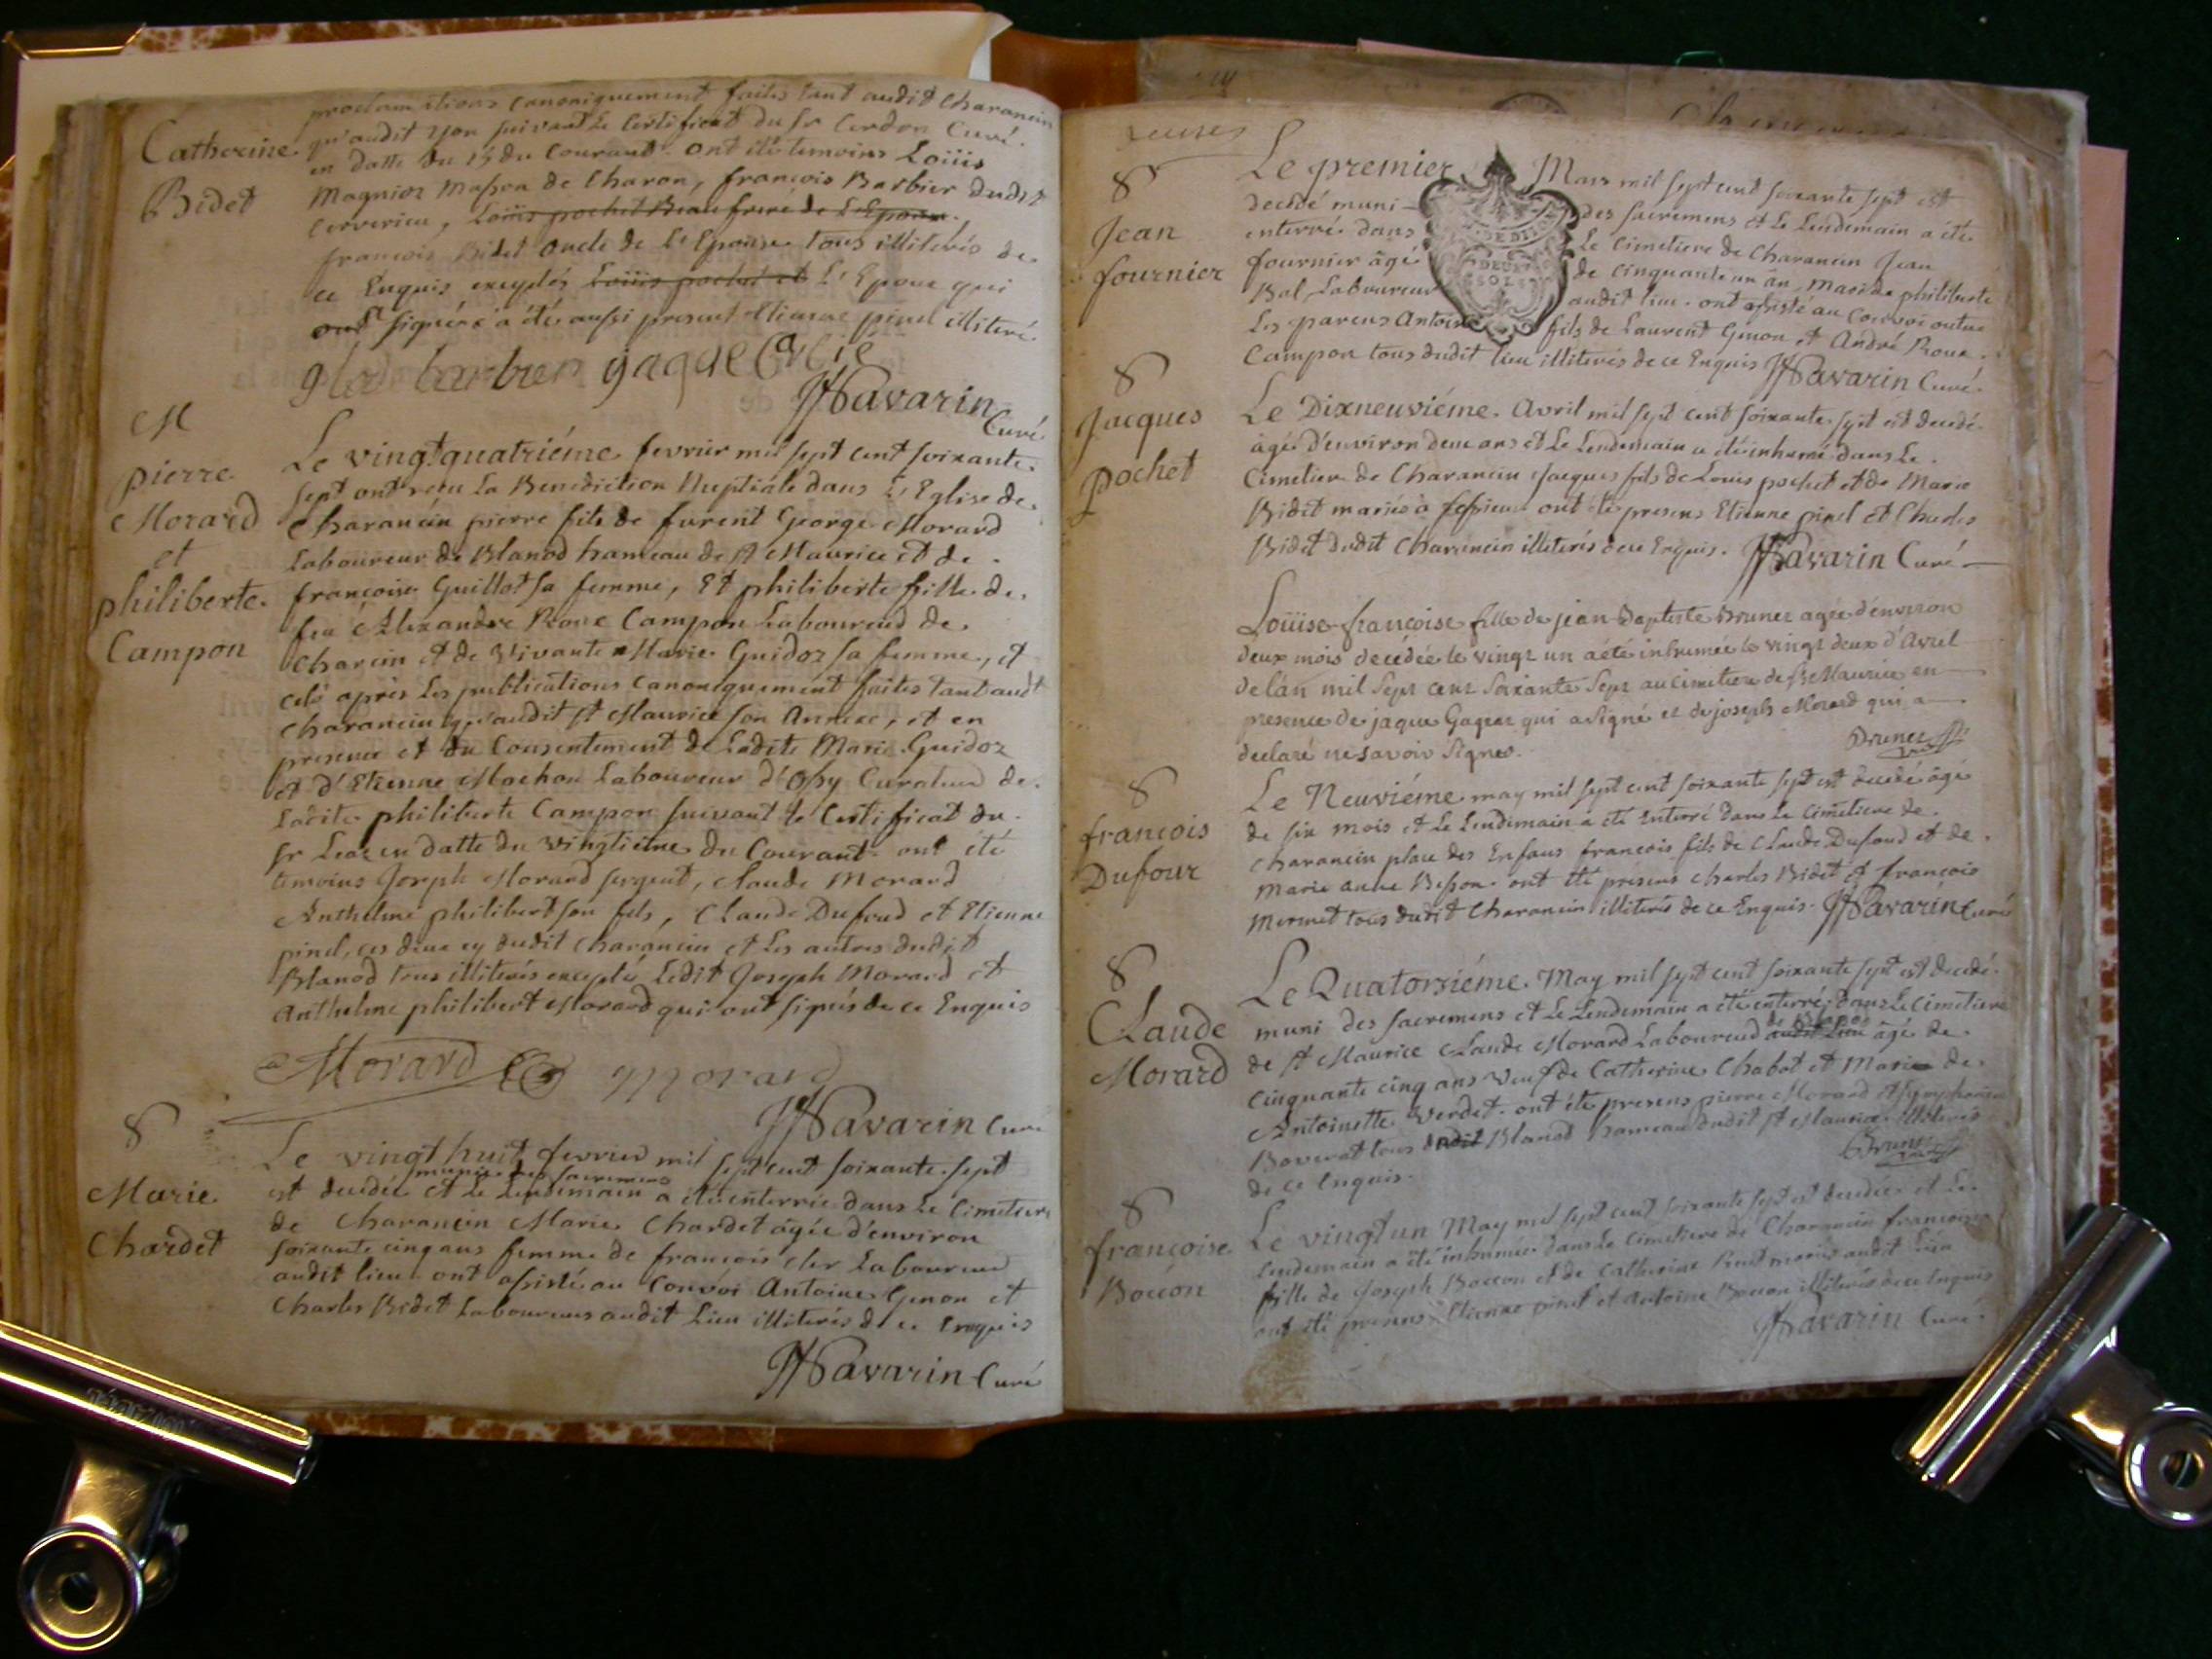 proclamations canoniquement faites tant audit Charancin
qu'audit yon suivant le Certificat du Sr Cerdon Curé.
en datte du 15 du Courant. ont été temoins Loüis
Catherine
Bidet
Magnion Masson de Charon, françois Barbier dudit
Cerverieu, Loüis pochet Beaufrere de L'Epouse.
françois Bidet oncle de L'Epouse. tous illiterés de
ce Enquis exceptés Loüis pochet et L'Epoux qui
ont signé a été aussi present Etienne pinel illiteré.
Navarin
Curé
M
pierre
Morard
et
philiberte
Campon
Le vingtquatriéme fevrier mil sept cent soixante
sept ont reçu la Benediction Nuptiale dans L'Eglise de
Charancin pierre fils de furent George Morard
Laboureur de Blanod hameau de St Maurice et de
françoise Guillot sa femme, Et philiberte fille de
feu Alexandre Roux Campon Laboureur de
Charcin et de Vivante Marie Guidoz sa femme, et
celà après les publications canoniquement faites tant audt
Charancin qu'audit St Maurice son Annexe, et en
presence et du Consentement de Ladite Marie Guidoz
et d'Etienne Machon Laboureur d'Ossy Curateur de
Ladite philiberte Campon suivant le Certificat du
Sr en datte du vingtiéme du Courant. ont été
temoins Joseph Morard sergent, Claude Morard
Anthelme philibert son fils, Claude Dufour et Etienne
pinel, ces deux cy dudit Charancin et les autres dudit
Blanod tous illiterés excepté Ledit Joseph Morard et
Anthelme philibert Morard qui ont signés de ce Enquis
Morard Morard
Navarin Curé
8
Marie
Chardet
Le vingt huit fevrier mil sept cent soixante sept
munie des sacremens
est decedée et le Lendemain a été enterrée dans le Cimetiere
de Charancin Marie Chardet âgée d'environ
soixante cinq ans femme de françois Laboureur
audit lieu. ont assisté au Convoi Antoine Genon et
Charles Bidet Laboureurs audit Lieu illiterés de ce Enquis
Navarin Curé
8
Jean
fournier
Le premier Mars mil sept cent soixante sept est
decedé muni des sacremens et le Lendemain a été
enterré dans le Cimetiere de Charancin Jean
fournier âgé de cinquante un an, Mari de philiberte
Bal Laboureur audit lieu. ont assisté au Convoi outre
Les parens Antoine fils de Laurent Genon et André Roux
Campon tous dudit lieu illiterés de ce Enquis Navarin Curé.
8
Jacques
pochet
Le Dixneuviéme Avril mil sept cent soixante sept est decedé
âgé d'environ deux ans et le Lendemain a été inhumé dans Le
Cimetiere de Charancin Jacques fils de Louis pochet et de Marie
Bidet mariés à ont été presens Etienne pinel et Charles
Bidet dudit Charancin illiterés de ce Enquis. Navarin Curé
Loüise françoise fille de jean Baptiste Brunet agée d'environ
deux mois decédée le vingt un a été inhumée le vingt deux d'Avril
de l'an mil Sept cent Soixante Sept au cimetiere de St Maurice en
presence de jaque Gagnes qui a signé et de joseph Morard qui a
declaré ne savoir Signer.
Brunet
8
francois
Dufour
Le Neuviéme may mil sept cent soixante sept est decedé âgé
de six mois et Le Lendemain a été Enterré dans Le Cimetiere de
Charancin place des Enfans francois fils de Claude Dufour et de
Marie Anne Besson. ont été presens Charles Bidet et francois
Mermet tous dudit Charancin illiterés de ce Enquis. Navarin Curé
8
Claude
Morard
Le Quatorziéme May mil sept cent soixante sept est decedé
muni des sacremens et Le Lendemain a été enterré dans Le Cimetiere
de Blanod
de St Maurice Claude Morard Laboureur audit Lieu âgé de
cinquante cinq ans veuf de Catherine Chabot et Mari de
Antoinette Verdet. ont été presens pierre Morard et Symphorien
Boverat tous dudit Blanod hameau dudit St Maurice illiterés
de ce Enquis.
Brunet
8
françoise
Bocon
Le vingt un May mil sept cent soixante sept est decedée et Le
Lendemain a été inhumée dans Le Cimetiere de Charancin françoise
fille de Joseph Bocon et de Catherine mariés audit Lieu
ont été presens Etienne pinel et Antoine Bocon illiterés de ce Enquis
Navarin Curé.